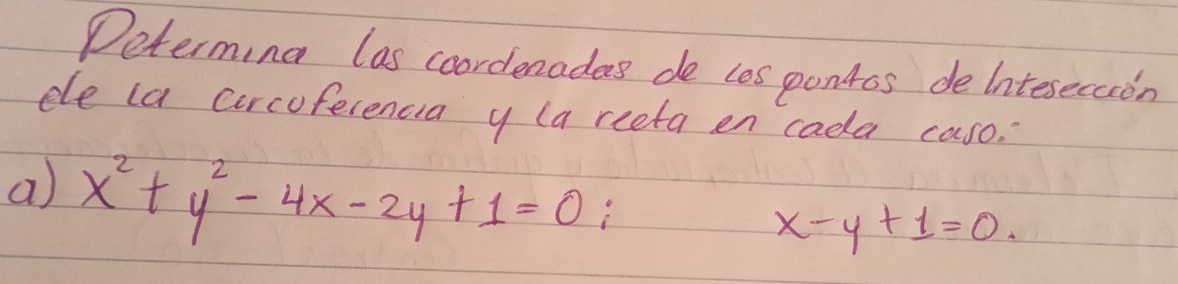 Determina las coordenadas de los pontos de Inteseccción
de la circoferencia y la recta en cada caso:
a) x² + y² - 4x - 2y + 1 = 0; x - y + 1 = 0.